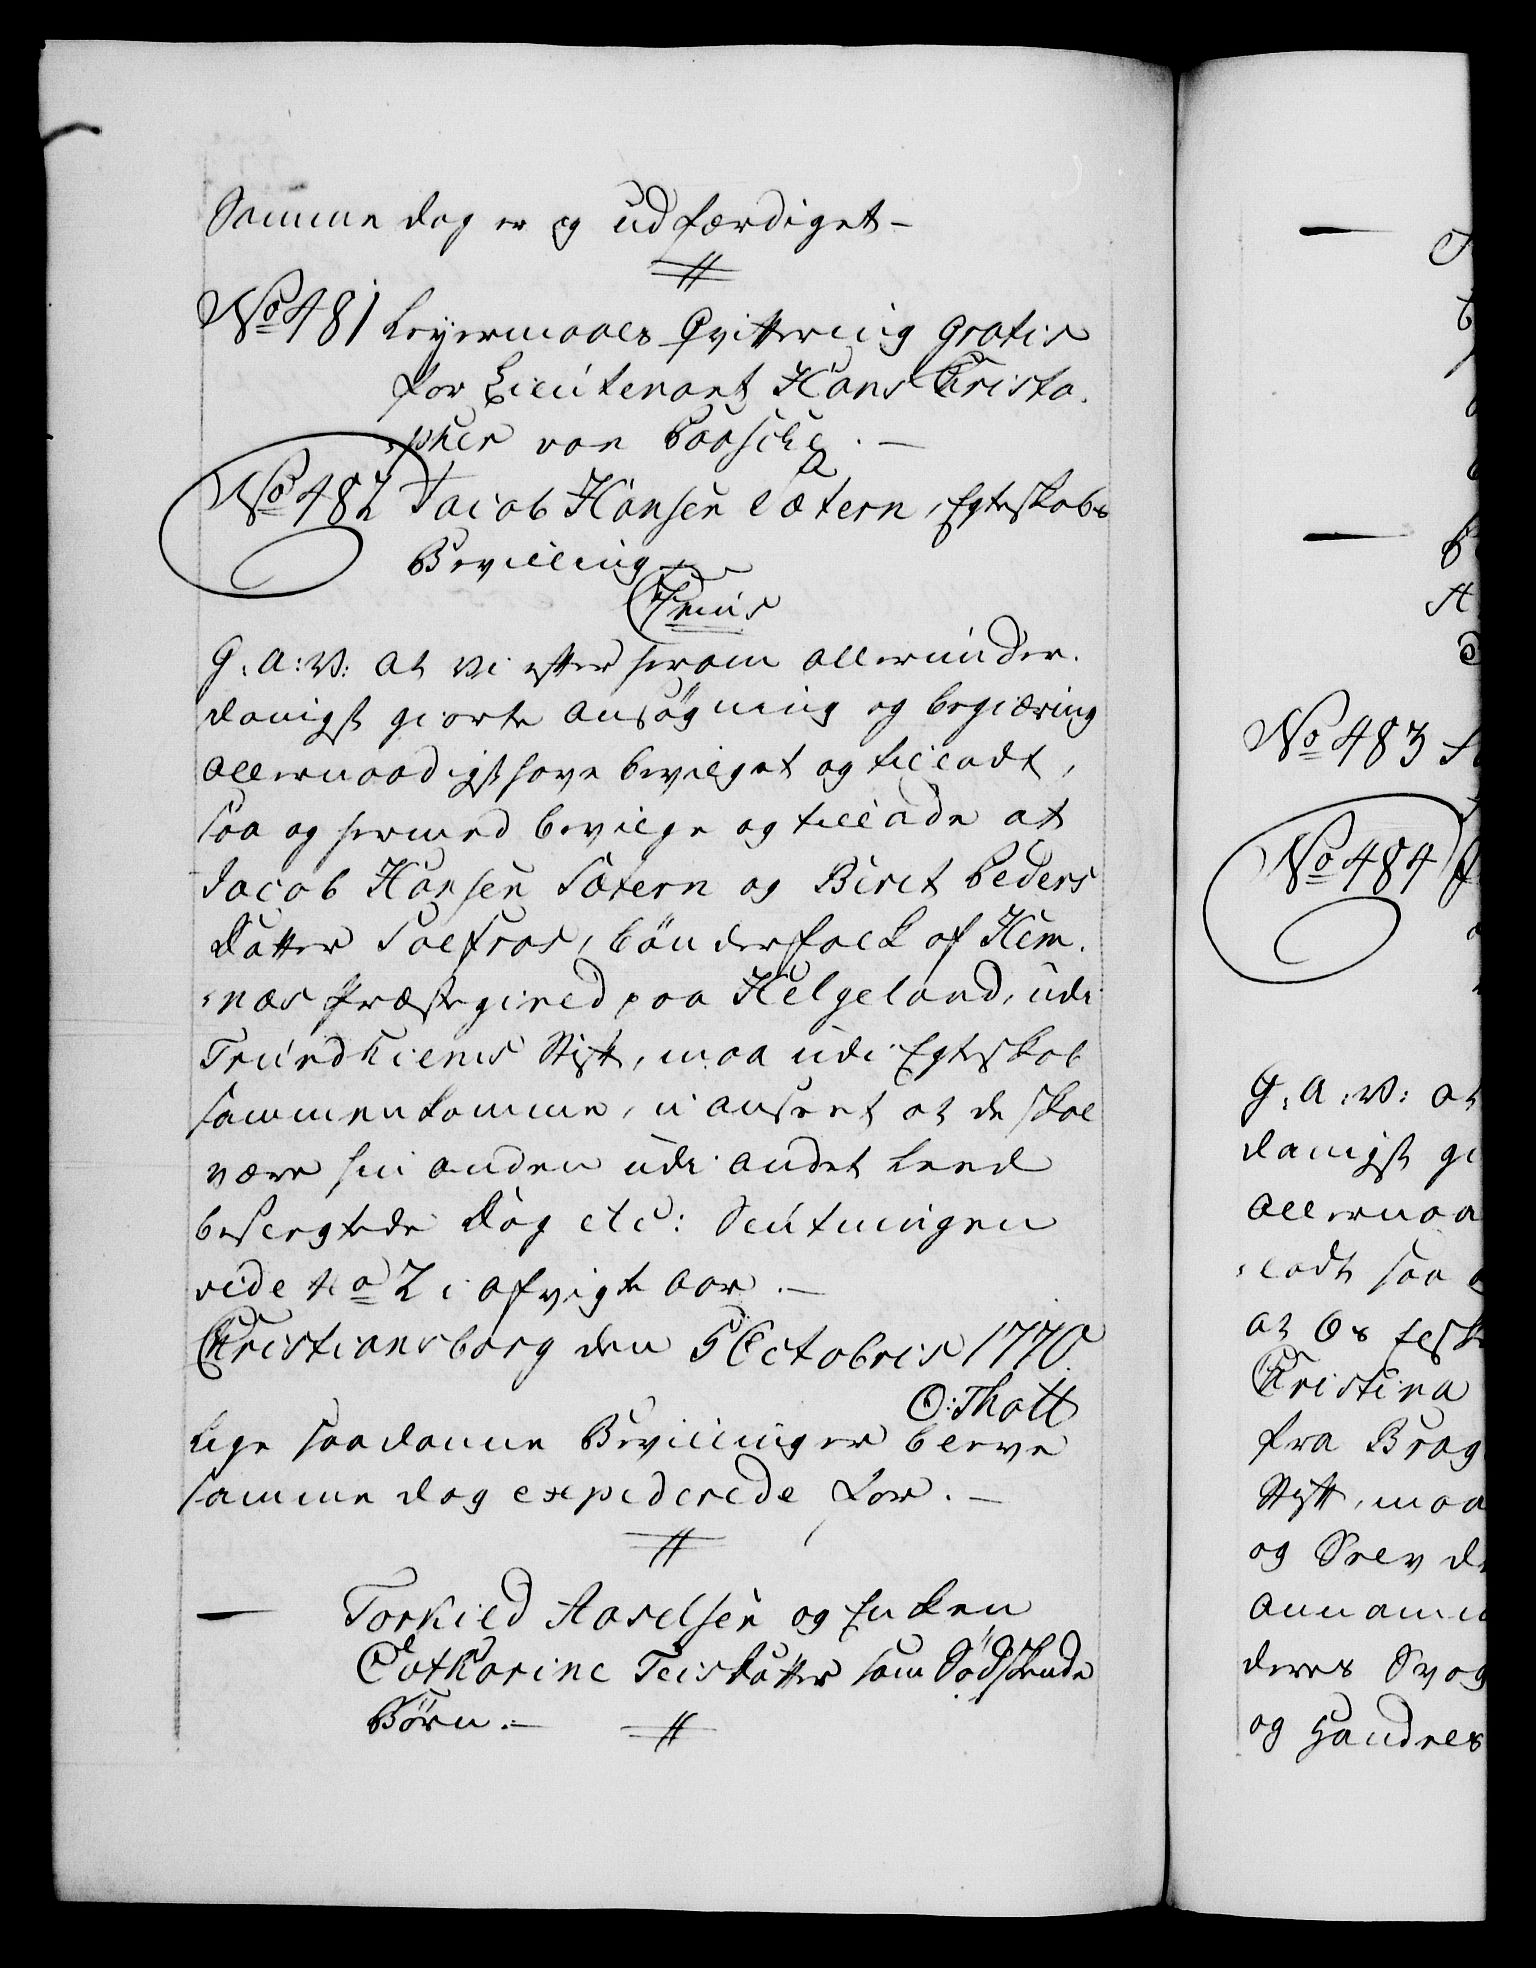 Samme dag er og udfærdiget -
No 481 Leyermaals Qvittering gratis
for Lieutenant Hans Christo-
pher von Paasche. -
No 482 Jacob Hansen Sætern, Egteskabs
Bevilling.
G: A: V: at vi efter herom allerunder-
danigst giorte Ansögning og begiæring
allernaadigst have bevilget og tilladt,
saa og hermed bevilge og tillade at
Jacob Hansen Sætern og Birit Peders
Datter Solfros, bönderfolk af Hem-
næs Præstegield paa Helgeland, udi
Trundhiems Stift, maa udi Egteskab
sammenkomme, uanseet at de skal
være hin anden udi andet Leed
beslegtede Dog etc: Slutningen
vide No 2 i afvigte aar. -
Christiansborg den 5 Octobris 1770.
O: Thott
Lige saadanne Bevillinger bleve
samme dag expederede for. -
- Torkild Axelsen og Enken
Catharine Teisdatter som Södskende
Börn. -
No 483
No 484
G: A: V: at
danigst gi
allernaa
ladt saa
at Os
Christina
fra Brag
Stift, maa
og Selv
deres Svog
og Handres